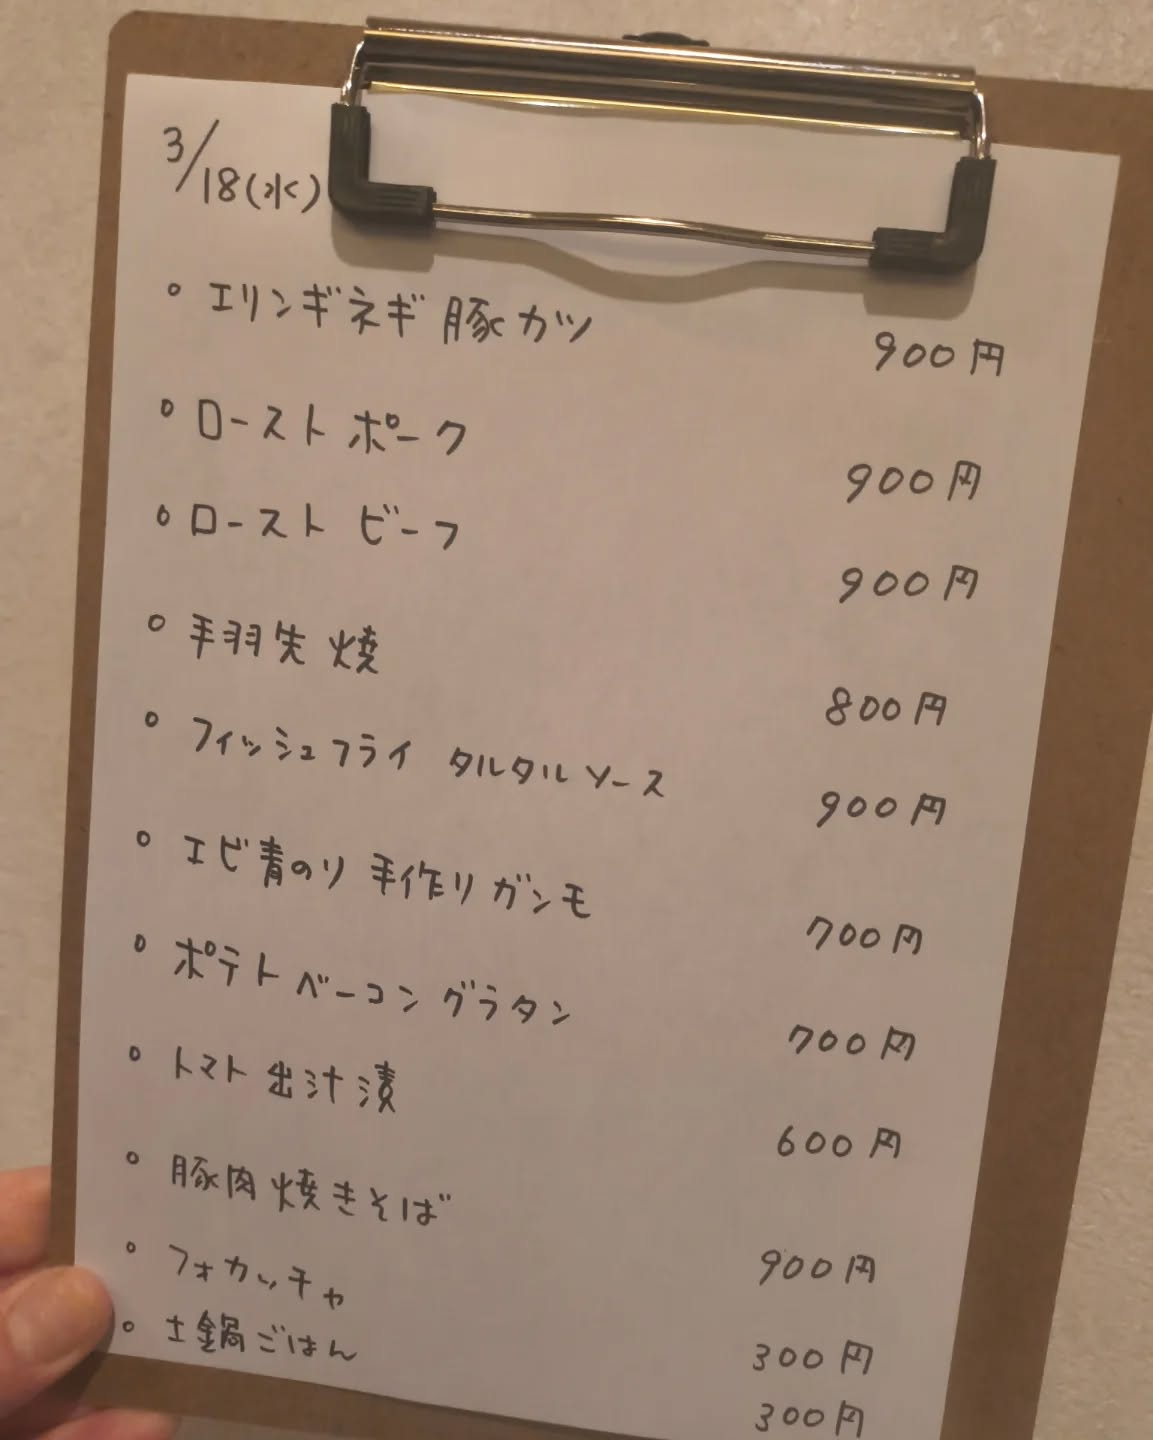 3/18(水)
• エリンギネギ豚カツ 900円
• ローストポーク 900円
• ローストビーフ 900円
• 手羽先焼 800円
• フィッシュフライ タルタルソース 900円
• エビ青のり 手作りガンモ 700円
• ポテトベーコングラタン 700円
• トマト出汁漬 600円
• 豚肉焼きそば 900円
• フォカッチャ 300円
• 土鍋ごはん 300円